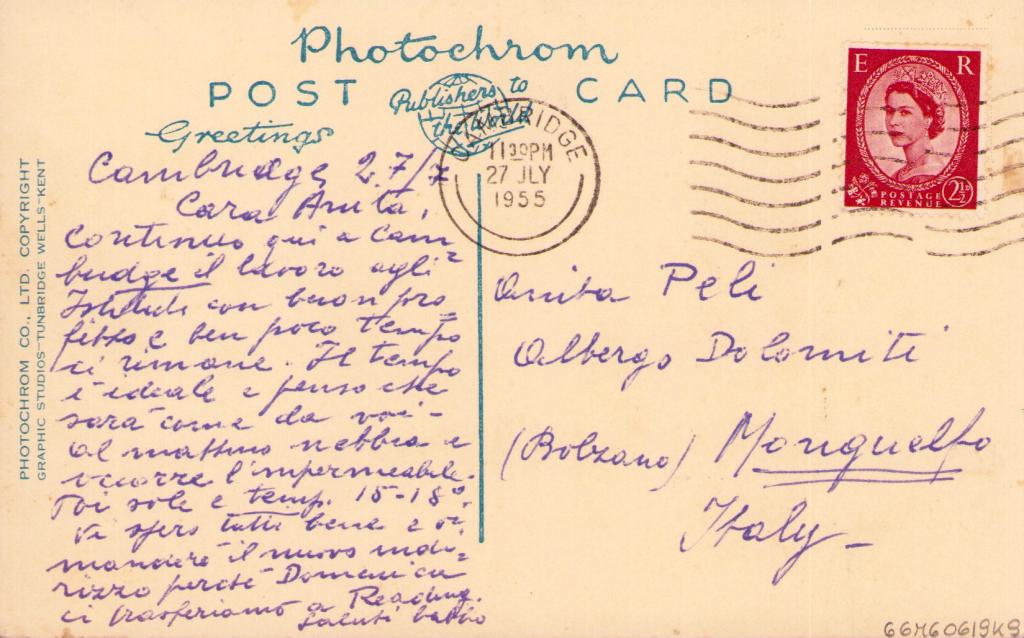 Photochrom
POST CARD
Publishers to
the World
Greetings
CAMBRIDGE
11 30 PM
27 JLY
1955
E R
POSTAGE
REVENUE
2½D
PHOTOCHROM CO., LTD. COPYRIGHT
GRAPHIC STUDIOS-TUNBRIDGE WELLS-KENT
Cambridge 27/7
Cara Anita,
continuo qui a Cam=
bridge il lavoro agli
Istituti con buon pro=
fitto e ben poco tempo
ci rimane. Il tempo
è ideale e penso che
sarà come da voi-
al mattino nebbia e
occorre l'impermeabile.
Poi sole e temp. 15-18°.
Vi spero tutti bene e vi
manderò il nuovo indi=
rizzo perché Domenica
ci trasferiamo a Reading.
Saluti babbo
Anita Peli
Albergo Dolomiti
(Bolzano) Monguelfo
Italy-
66M60619K9